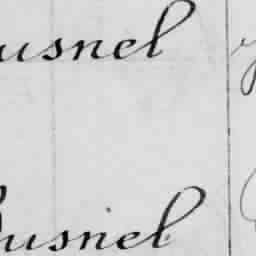 usnel
Busnel